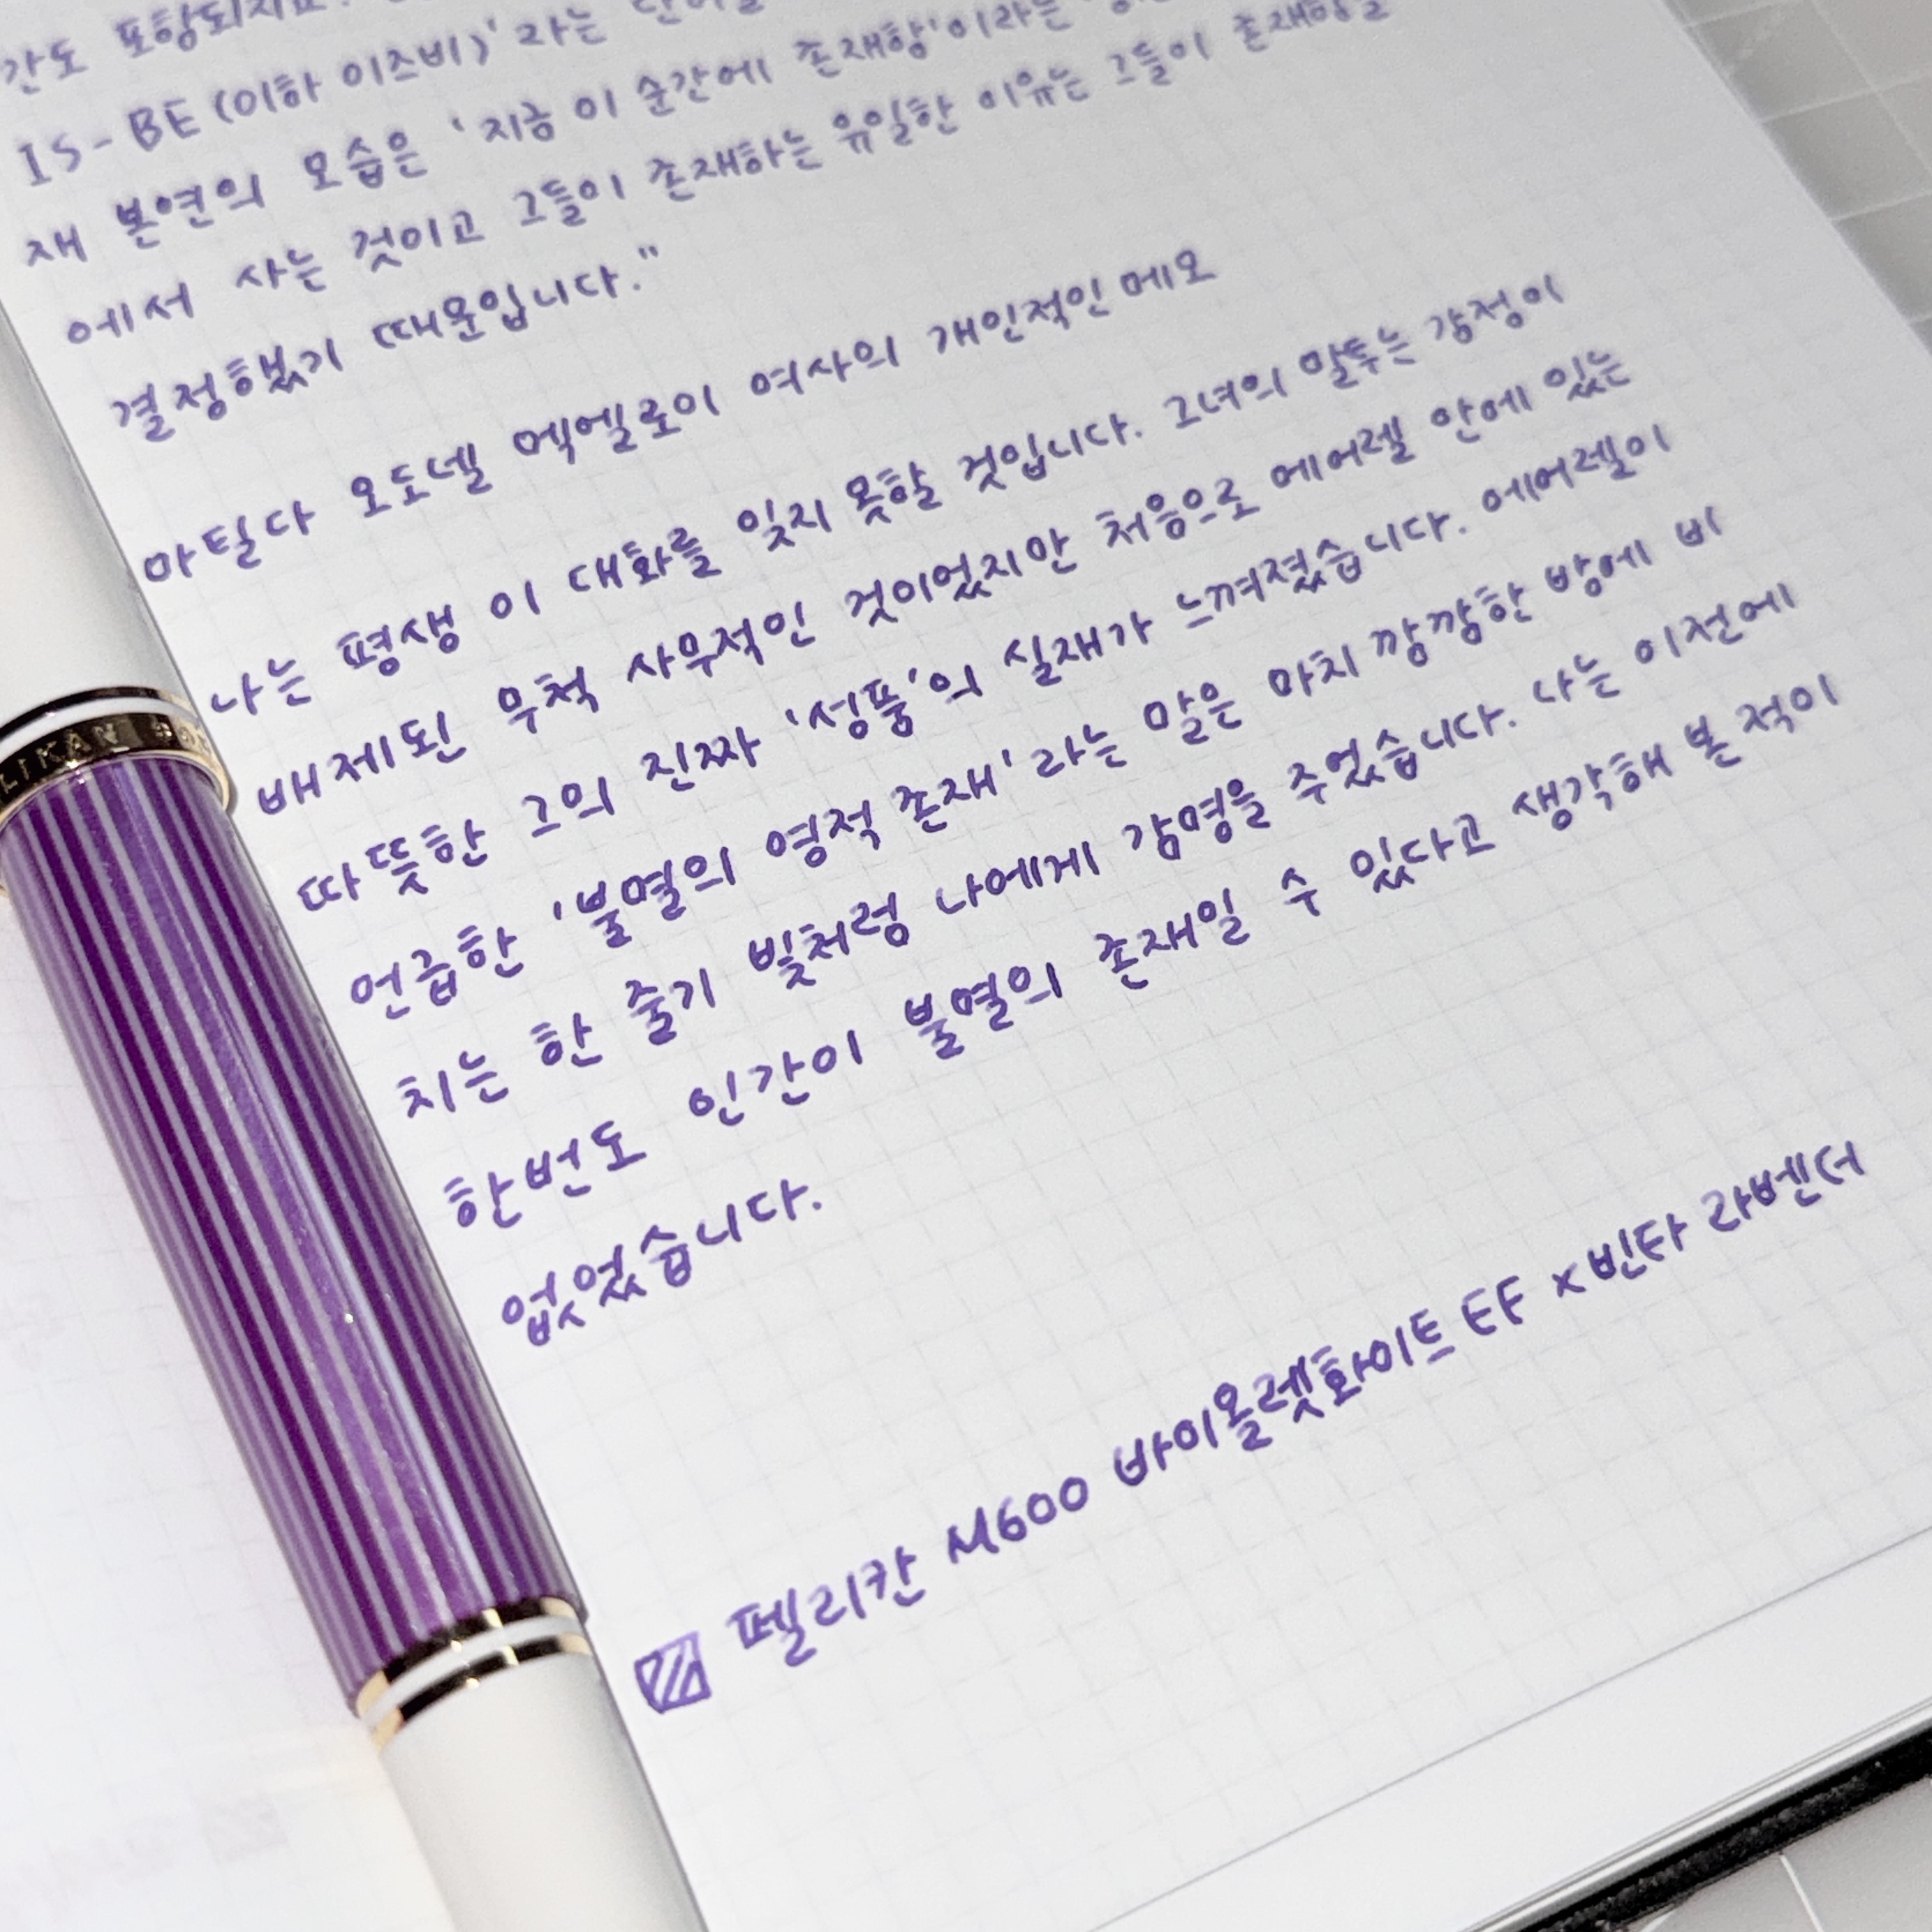 간도 포함되지요.
IS-BE(이하 이즈비)'라는 단어를
재 본연의 모습은 '지금 이 순간에 존재함'이라는
에서 사는 것이고 그들이 존재하는 유일한 이유는 그들이 존재함을
결정했기 때문입니다."
마틸다 오도넬 멕엘로이 여사의 개인적인 메모
나는 평생 이 대화를 잊지 못할 것입니다. 그녀의 말투는 감정이
배제된 무척 사무적인 것이었지만 처음으로 에어렐 안에 있는
따뜻한 그의 진짜 '성품'의 실재가 느껴졌습니다. 에어렐이
언급한 '불멸의 영적 존재'라는 말은 마치 깜깜한 방에 비
치는 한 줄기 빛처럼 나에게 감명을 주었습니다. 나는 이전에
한번도 인간이 불멸의 존재일 수 있다고 생각해 본 적이
없었습니다.
펠리칸 M600 바이올렛화이트 EF ×빈타 라벤더
LIKAN